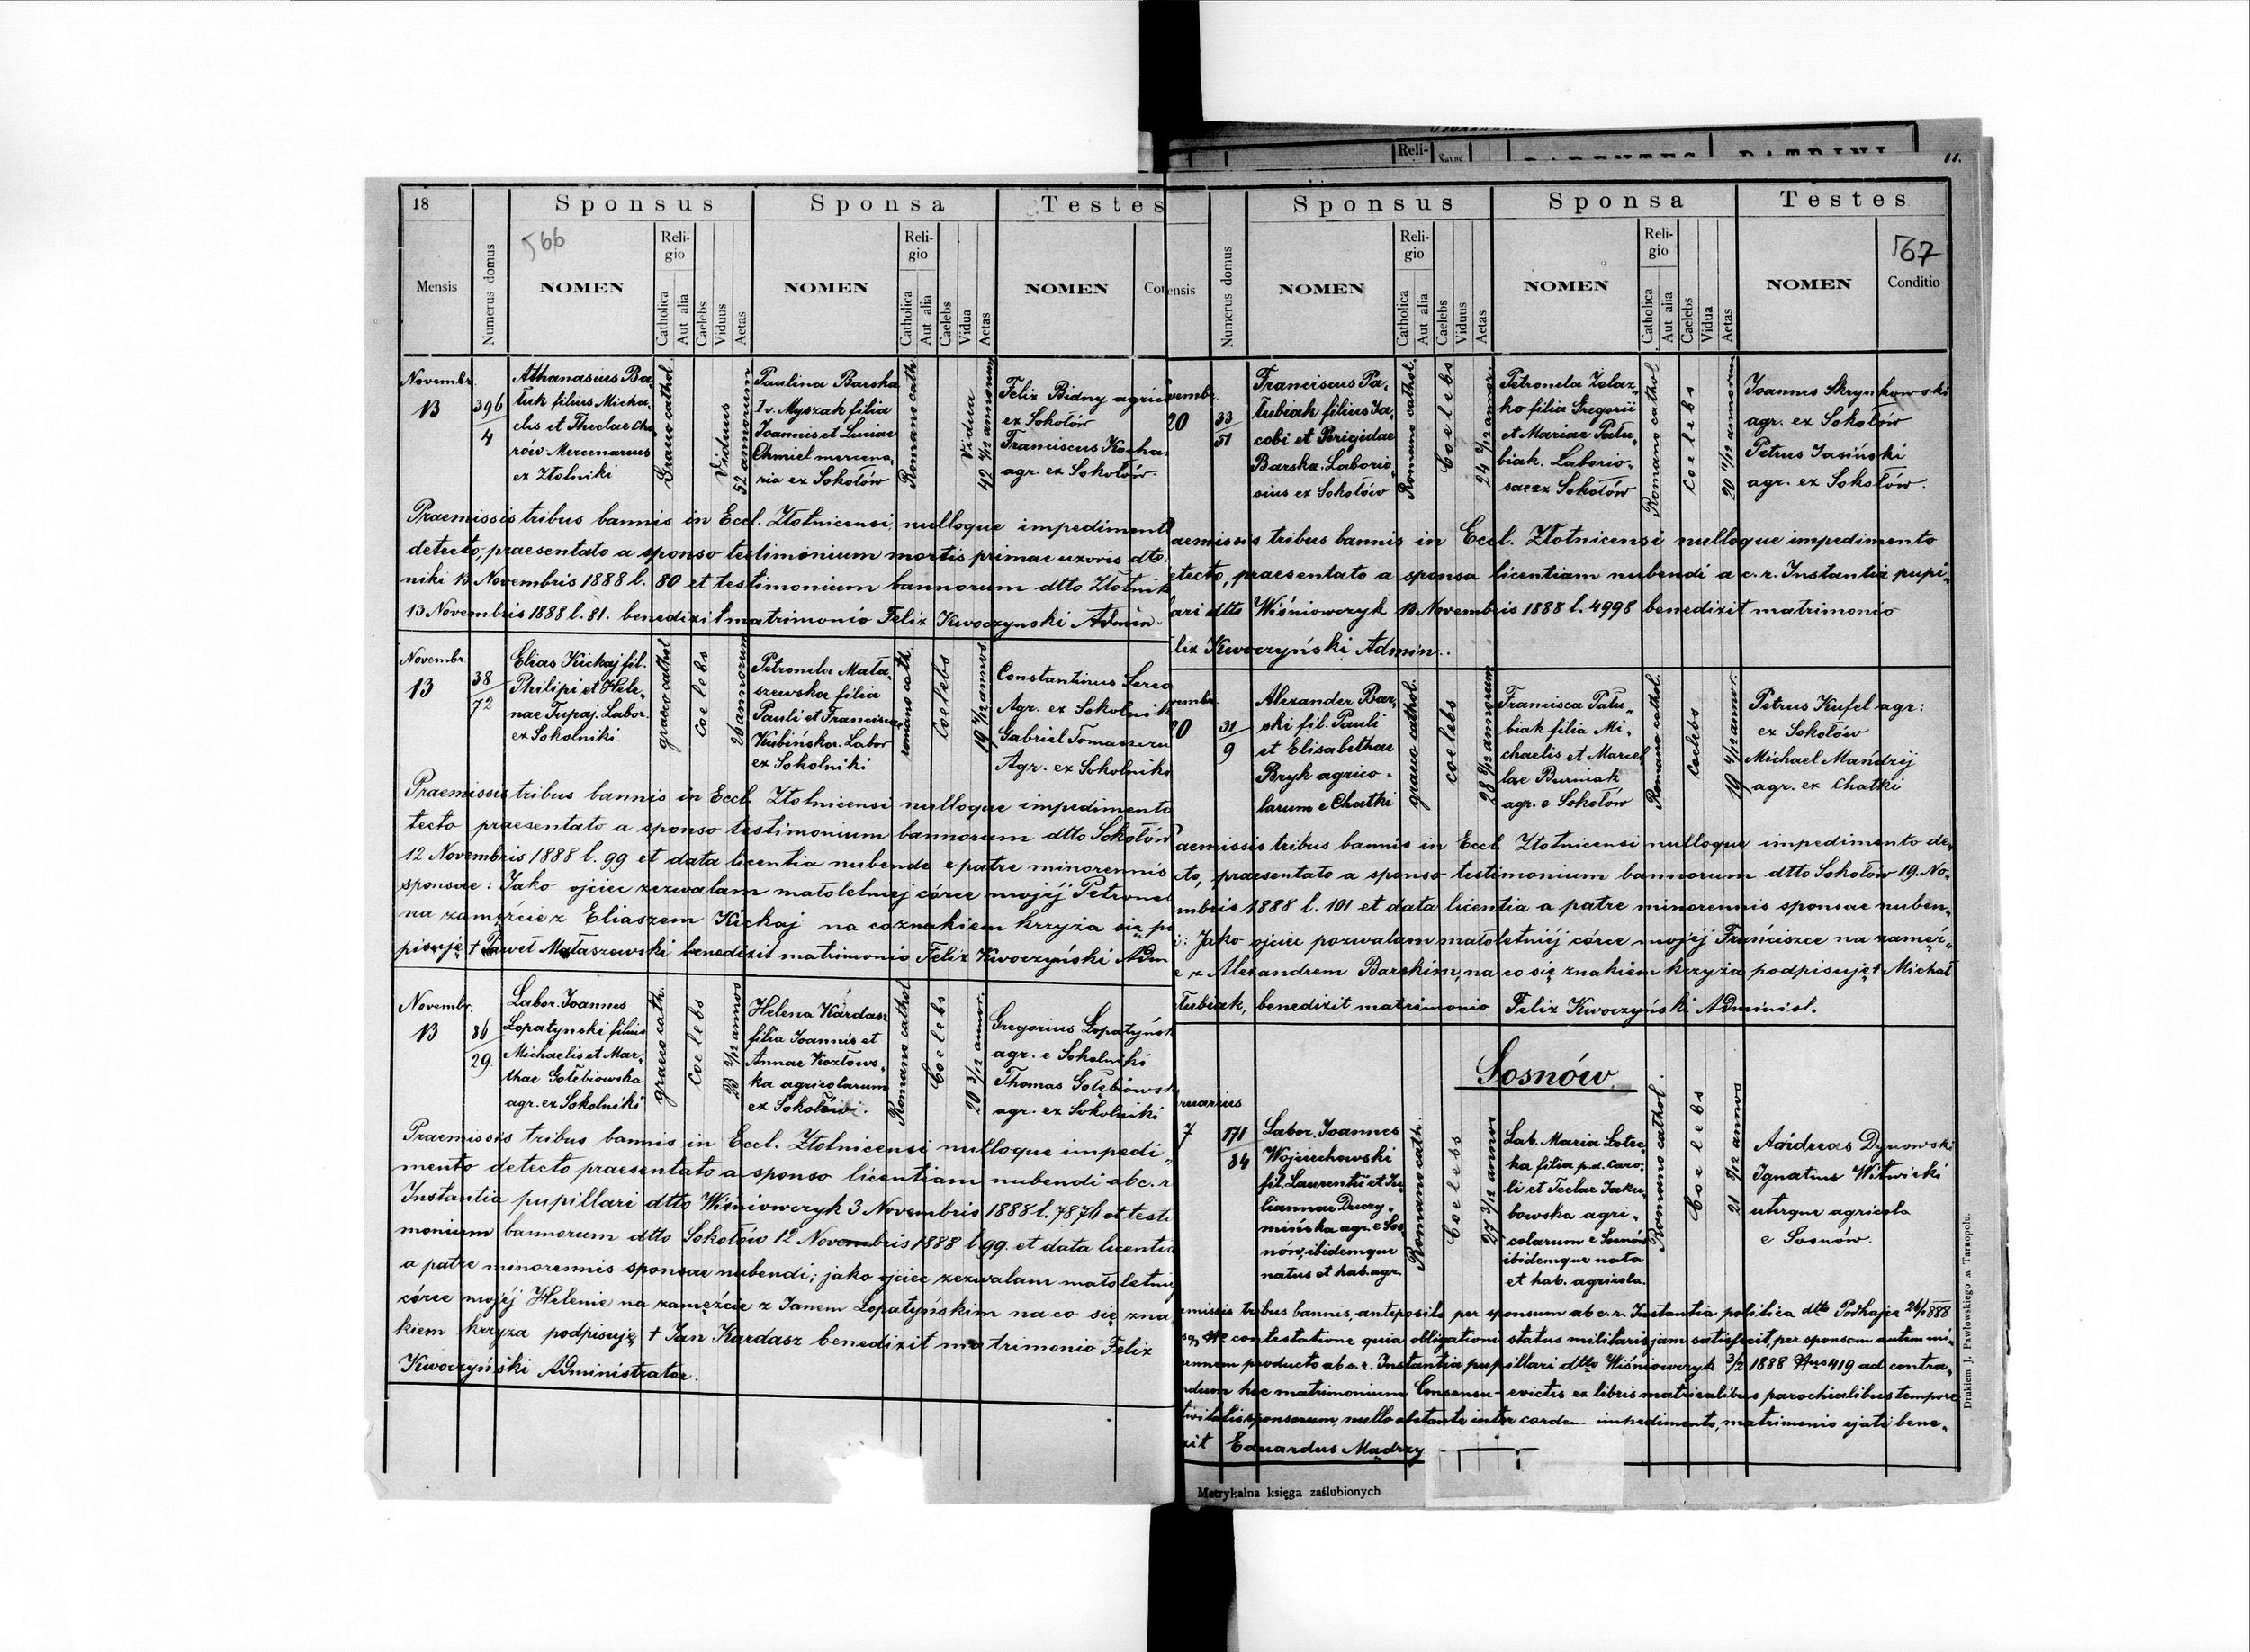 18
Sponsus Sponsa Testes
566
Mensis
Numerus domus
NOMEN
Religio
Catholica
Aut alia
Caelebs
Viduus
Aetas
NOMEN
Religio
Catholica
Aut alia
Caelebs
Vidua
Aetas
NOMEN
Novembr.
13
396
4
Athanasius Ba„
tuk filius Micha„
elis et Theclae Cha„
rów Mercenarius
ex Złotniki
Graeco cathol.
Viduus
52 annorum
Paulina Barska
I v. Myszak filia
Joannis et Luciae
Chmiel mercena„
ria ex Sokołów
Romano cath.
Vidua
42 4/12 annorum
Felix Bidny agric
ex Sokołów
Franciscus Kocha
agr. ex Sokołów.
Praemissis tribus bannis in Eccl. Złotnicensi, nulloque impediment
detecto, praesentato a sponso testimonium mortis primae uxoris dto.
niki 13 Novembris 1888 l. 80 et testimonium bannorum dtto Złotnik
13 Novembris 1888 l. 81. benedixit matrimonio Felix Kwoczynski Admin.
Novembr.
13
38
72
Elias Kickaj fil.
Philipi et Hele„
nae Tupaj. Labor.
ex Sokolniki.
graeco cathol
coelebs
26 annorum
Petronela Mała„
szewska filia
Pauli et Franciscae
Kubińska. Labor
ex Sokolniki
romano cath.
Coelebs
19 annos.
Constantinus Sereo
Agr. ex Sokolnik
Gabriel Tomaszew
Agr. ex Sokolniki
Praemissis tribus bannis in Eccl. Złotnicensi nulloque impedimento
tecto praesentato a sponso testimonium bannorum dtto Sokołów
12 Novembris 1888 l. 99 et data licentia nubende e patre minorennis
sponsae: Jako ojciec zezwalam małoletniej córce mojéj Petronel
na zamęźcie z Eliaszem Kickaj na co znakiem krzyża się po
pisuję † Paweł Małaszewski benedixit matrimonio Felix Kwoczyński Adm
Novembr.
13
86
29.
Labor. Joannes
Lopatynski filius
Michaelis et Mar„
thae Gołębiowska
agr. ex Sokolniki
graeco cath.
Coelebs
23 2/12 annos
Helena Kardasz
filia Joannis et
Annae Kozłows„
ka agricolarum
ex Sokołów.
Romano cathol
Coelebs
20 3/12 annor.
Gregorius Łopatyńsk
agr. e Sokolniki
Thomas Gołębiowsk
agr. ex Sokolniki
Praemissis tribus bannis in Eccl. Złotnicensi nulloque impedi„
mento detecto praesentato a sponso licentiam nubendi ab c. r
Instantia pupillari dtto Wiśniowczyk 3 Novembris 1888 l. 7876 et testi
monium bannorum dtto Sokołów 12 Novembris 1888 l. 99. et data licentia
a patre minorennis sponsae nubendi; jako ojciec zezwalam małoletniej
córce mojéj Helenie na zamęźcie z Janem Łopatyńskim na co się zna
kiem krzyża podpisuję † Jan Kardasz benedixit matrimonio Felix
Kwoczyński Administrator.
Reli-
11.
Sponsus Sponsa Testes
567
ensis
Numerus domus
NOMEN
Religio
Catholica
Aut alia
Caelebs
Viduus
Aetas
NOMEN
Religio
Catholica
Aut alia
Caelebs
Vidua
Aetas
NOMEN
Conditio
vembr.
20
33
51
Franciscus Pa„
łubiak filius Ja„
cobi et Brigidae
Barska. Laborio„
sius ex Sokołów
Romano cathol.
Coelebs
24 2/12 annor.
Petronela Żelaz„
ko filia Gregorii
et Mariae Pału„
biak. Laborio„
sae ex Sokołów
Romano cathol
Coelebs
20 11/12 annorum
Joannes Skrynkowski
agr. ex Sokołów
Petrus Jasiński
agr. ex Sokołów.
aemissis tribus bannis in Eccl. Złotnicensi nulloque impedimento
etecto, praesentato a sponsa licentiam nubendi a c. r. Instantia pupi„
lari dtto Wiśniowczyk 13 Novembris 1888 l. 4998 benedixit matrimonio
lix Kwoczyński Admin..
vembr.
20
31
9
Alexander Bar„
ski fil. Pauli
et Elisabethae
Bryk agrico„
larum e Chatki
graeco cathol.
coelebs
28 8/12 annorum
Francisca Pału„
biak filia Mi„
chaelis et Marcel
lae Burniak
agr. e Sokołów
Romano cathol.
Coelebs
19 4/12 annor.
Petrus Kufel agr:
ex Sokołów
Michael Mańdzij
agr. ex Chatki
aemissis tribus bannis in Eccl. Złotnicensi nulloque impedimento de„
cto, praesentato a sponso testimonium bannorum dtto Sokołów 19. No„
mbris 1888 l. 101 et data licentia a patre minorennis sponsae nuben„
i: Jako ojciec pozwalam małoletniéj córce mojéj Franciszce na zamęź„
e z Alexandrem Barskim, na co się znakiem krzyża podpisuję † Michał
łubiak, benedixit matrimonio Felix Kwoczyński Administ.
Sosnów.
ruarius
7
171
84
Labor. Joannes
Wojciechowski
fil. Laurentii et Ju„
liannae Dwory„
mińska agr. e Sos„
nów, ibidemque
natus et hab. agr.
Romano cath.
Coelebs
27 3/12 annos
Lab. Maria Lotec„
ka filia p.d. Caro„
li et Teclae Jaku„
bowska agri„
colarum e Sosnów
ibidemque nata
et hab. agricola.
Romano cathol.
Coelebs
21 annos
Andreas Dynowski
Ignatius Witwicki
uterque agricola
e Sosnów.
emissis tribus bannis, anteposita per sponsum ab c. r. Instantia politica dtto Podhajce 26/1 888
contestatione quia obligationi status militaris jam satisfecit, per sponsam autem mi„
ennem producto ab c. r. Instantia pupillari dtto Wiśniowczyk 3/2 1888 419 ad contra„
ndum hoc matrimonium Consensu - evictis ex libris matricalibus parochialibus tempore
tivitatis sponsorum, nullo obstante inter eosdem impedimento, matrimonio ejati bene„
xit Eduardus Mądrzy
Metrykalna księga zaślubionych
Drukiem J. Pawłowskiego w Tarnopolu.